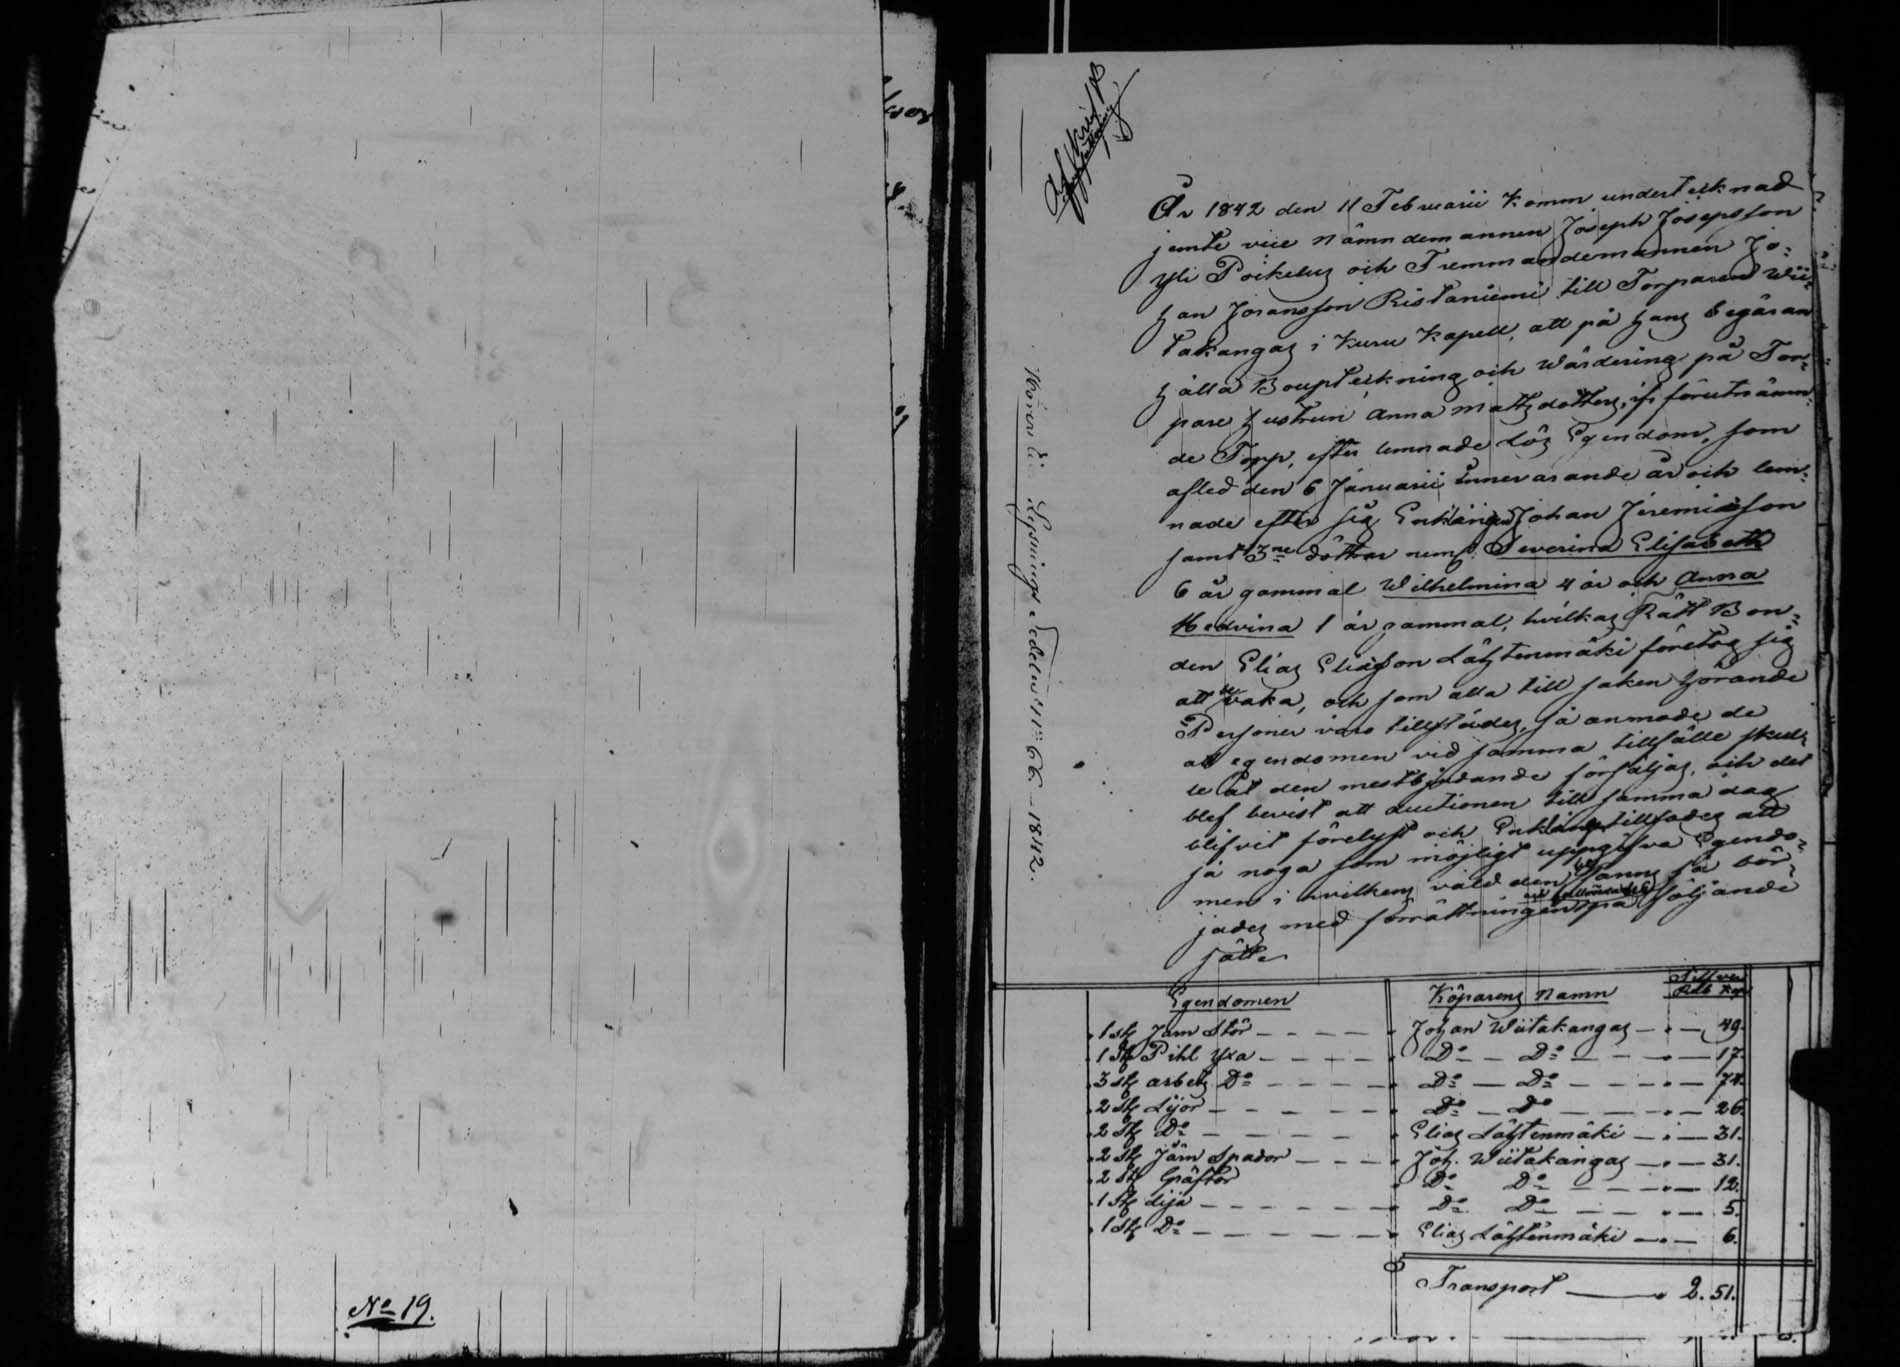 No 19.
År 1842 den 11 Februarii komm undertecknad
jemte vice Nämndemannen Joseph Josepsson
Yli Poikelus och Fremmandemannen Jo-
han Joransson Ristaniemi till Torparen Wii-
takangas i Kuru Kapell, att på hans begäran
hålla Boupteckning och Wärdering på Tor-
pare hustrun Anna Mattsdotters, ifr förutnämn-
de Torpp, efter lemnade Lös Egendom, som
afled den 6 Januarii innevarande år och lem-
nade efter sig Enklingen Johan Jeremiasson
samt 3ne döttrar neml. Severina Elisabeth
6 år gammal Wilhelmina 4 år och Anna
Hedvina 1 år gammal, hvilkas Rätt Bon-
den Elias Eliasson Lähtenmäki företog sig
att bevaka, och som alla till saken hörande
Personer voro tillstädes, så anmode de
att egendomen vid samma tillfälle skul-
le åt den mestbjudande försäljas, och det
blef bevist att auctionen till samma dag
blifvit förelyst och Enklingen tillsades att
så noga som möjligt uppgifva Egendo-
men i hvilkens våld den fanns så bör-
jades med förrättningen på följande
sätt
Höres Lysnings Sedelen N:o 66. 1842.
Egendomen Köparens Namn Silfver Rub Kop
1 stk Järn Stör Johan Wiitakangas 49.
1 stk Pihl Yxa Do Do 17.
3 stk arbets Do Do Do 74.
2 stk Lijor Do Do 26.
2 stk Do Elias Lähtenmäki 31.
2 stk Järn Spador Joh. Wiitakangas 31.
2 stk Gräftor Do Do 12.
1 stk Lija Do Do 5.
1 stk Do Elias Lähtenmäki 6.
Transport 2. 51.